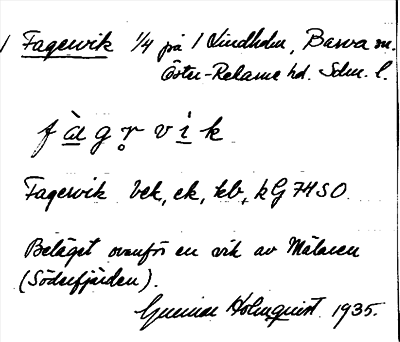 Fagervik 1/4 på 1 Lindholm, Barva sn.
Öster-Rekarne hd. Sdm. l.
fàgr̥vik
Fagervik bek, ek, kb, kG 74SO
Beläget ovanför en vik av Mälaren
(Söderfjärden).
Gunnar Holmquist 1935.